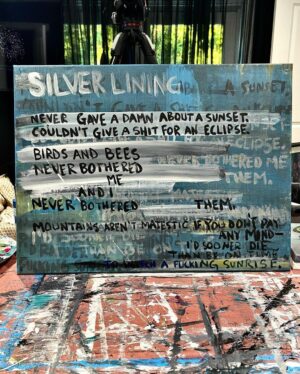 SILVER LINING
A SUNSET,
NEVER GAVE A DAMN ABOUT A SUNSET.
COULDN'T GIVE A SHIT FOR AN ECLIPSE.
ECLIPSE.
BIRDS AND BEES
NEVER BOTHERED
BOTHERED ME
ME
THEM.
AND I
NEVER BOTHERED THEM.
MOUNTAINS AREN'T MAJESTIC IF YOU DON'T PAY
ANY MIND—
I'D SOONER DIE
THAN BE ON TIME
TO WATCH A FUCKING SUNRISE.